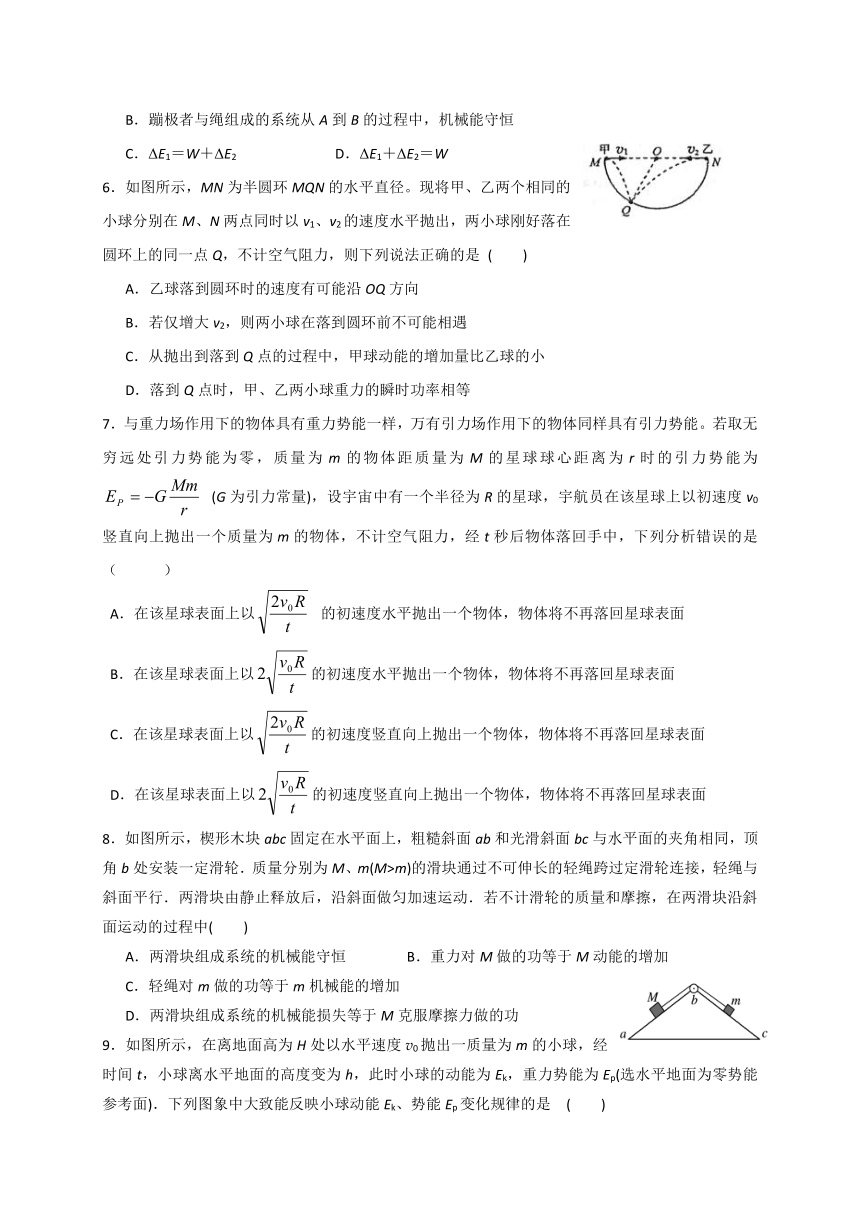 B．蹦极者与绳组成的系统从 A 到 B 的过程中，机械能守恒
C．ΔE₁＝W＋ΔE₂ D．ΔE₁＋ΔE₂＝W
甲 v₁ O v₂ 乙
M N
Q
6．如图所示，MN 为半圆环 MQN 的水平直径。现将甲、乙两个相同的
小球分别在 M、N 两点同时以 v₁、v₂ 的速度水平抛出，两小球刚好落在
圆环上的同一点 Q，不计空气阻力，则下列说法正确的是（ ）
A．乙球落到圆环时的速度有可能沿 OQ 方向
B．若仅增大 v₂，则两小球在落到圆环前不可能相遇
C．从抛出到落到 Q 点的过程中，甲球动能的增加量比乙球的小
D．落到 Q 点时，甲、乙两小球重力的瞬时功率相等
7．与重力场作用下的物体具有重力势能一样，万有引力场作用下的物体同样具有引力势能。若取无
穷远处引力势能为零，质量为 m 的物体距质量为 M 的星球球心距离为 r 时的引力势能为
E_P = −G Mm/r (G 为引力常量)，设宇宙中有一个半径为 R 的星球，宇航员在该星球上以初速度 v₀
竖直向上抛出一个质量为 m 的物体，不计空气阻力，经 t 秒后物体落回手中，下列分析错误的是
（ ）
A．在该星球表面上以 √(2v₀R/t) 的初速度水平抛出一个物体，物体将不再落回星球表面
B．在该星球表面上以 2√(v₀R/t) 的初速度水平抛出一个物体，物体将不再落回星球表面
C．在该星球表面上以 √(2v₀R/t) 的初速度竖直向上抛出一个物体，物体将不再落回星球表面
D．在该星球表面上以 2√(v₀R/t) 的初速度竖直向上抛出一个物体，物体将不再落回星球表面
8．如图所示，楔形木块 abc 固定在水平面上，粗糙斜面 ab 和光滑斜面 bc 与水平面的夹角相同，顶
角 b 处安装一定滑轮．质量分别为 M、m(M>m)的滑块通过不可伸长的轻绳跨过定滑轮连接，轻绳与
斜面平行．两滑块由静止释放后，沿斜面做匀加速运动．若不计滑轮的质量和摩擦，在两滑块沿斜
面运动的过程中( )
A．两滑块组成系统的机械能守恒 B．重力对 M 做的功等于 M 动能的增加
C．轻绳对 m 做的功等于 m 机械能的增加
D．两滑块组成系统的机械能损失等于 M 克服摩擦力做的功
M b m
a c
9．如图所示，在离地面高为 H 处以水平速度 v₀ 抛出一质量为 m 的小球，经
时间 t，小球离水平地面的高度变为 h，此时小球的动能为 Eₖ，重力势能为 Eₚ(选水平地面为零势能
参考面)．下列图象中大致能反映小球动能 Eₖ、势能 Eₚ 变化规律的是 ( )